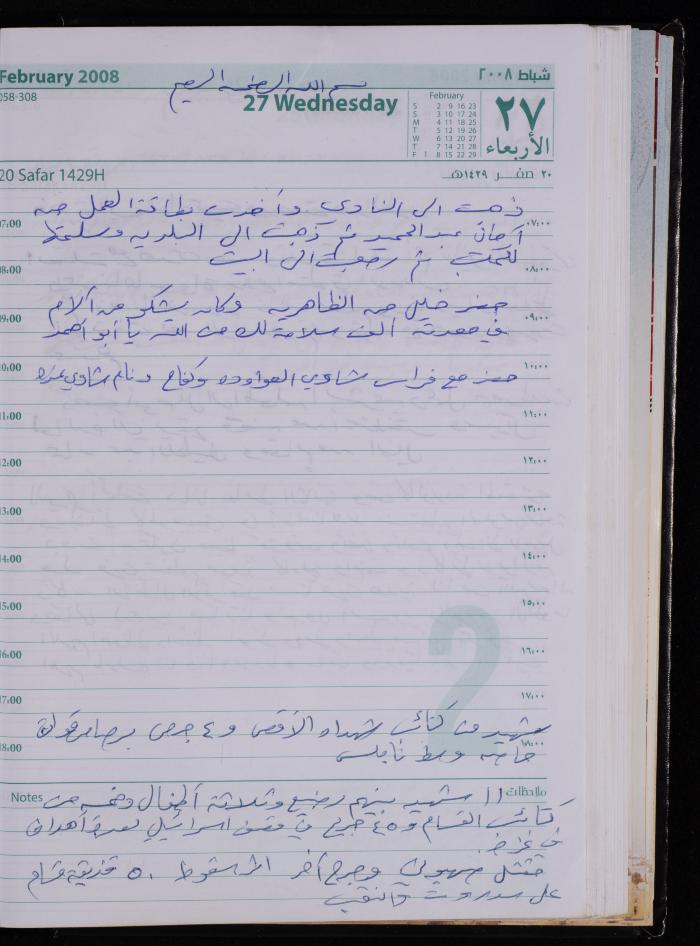 February 2008
شباط ٢٠٠٨
058-308
بسم الله الرحمن الرحيم
27 Wednesday
February
S 2 9 16 23
S 3 10 17 24
M 4 11 18 25
T 5 12 19 26
W 6 13 20 27
T 7 14 21 28
F 1 8 15 22 29
٢٧
الأربعاء
20 Safar 1429H
٢٠ صفر ١٤٢٩هـ
ذهبت الى النادي وأخذت بطاقة العمل من
07:00
٠٧:٠٠
أمان عبد الحميد ثم ذهبت الى البلدية وسلمتها
للمكتب ثم رجعت الى البيت
08:00
٠٨:٠٠
حضر خليل من الظاهرية وكان يشكو من آلام
09:00
٠٩:٠٠
في معدته ألف سلامة لك من الله يا أبو أحمد
10:00
١٠:٠٠
حضر مع فراس شاوي العواوده وكفاح ونام شاوي عنده
11:00
١١:٠٠
12:00
١٢:٠٠
13:00
١٣:٠٠
14:00
١٤:٠٠
15:00
١٥:٠٠
16:00
١٦:٠٠
2
17:00
١٧:٠٠
شهيد من كتائب شهداء الأقصى و ٤ جرحى برصاص قوات
18:00
١٨:٠٠
خاصة وسط نابلس
Notes
ملاحظات
١١ شهيد بينهم رضيع وثلاثة أطفال وخمسه من
كتائب القسام و ٤٥ جريح في قصف اسرائيلي لعدة أهداف
في غزة
مقتل صهيوني وجرح آخر اثر سقوط ٥٠ قذيفة قسام
على سديروت والنقب